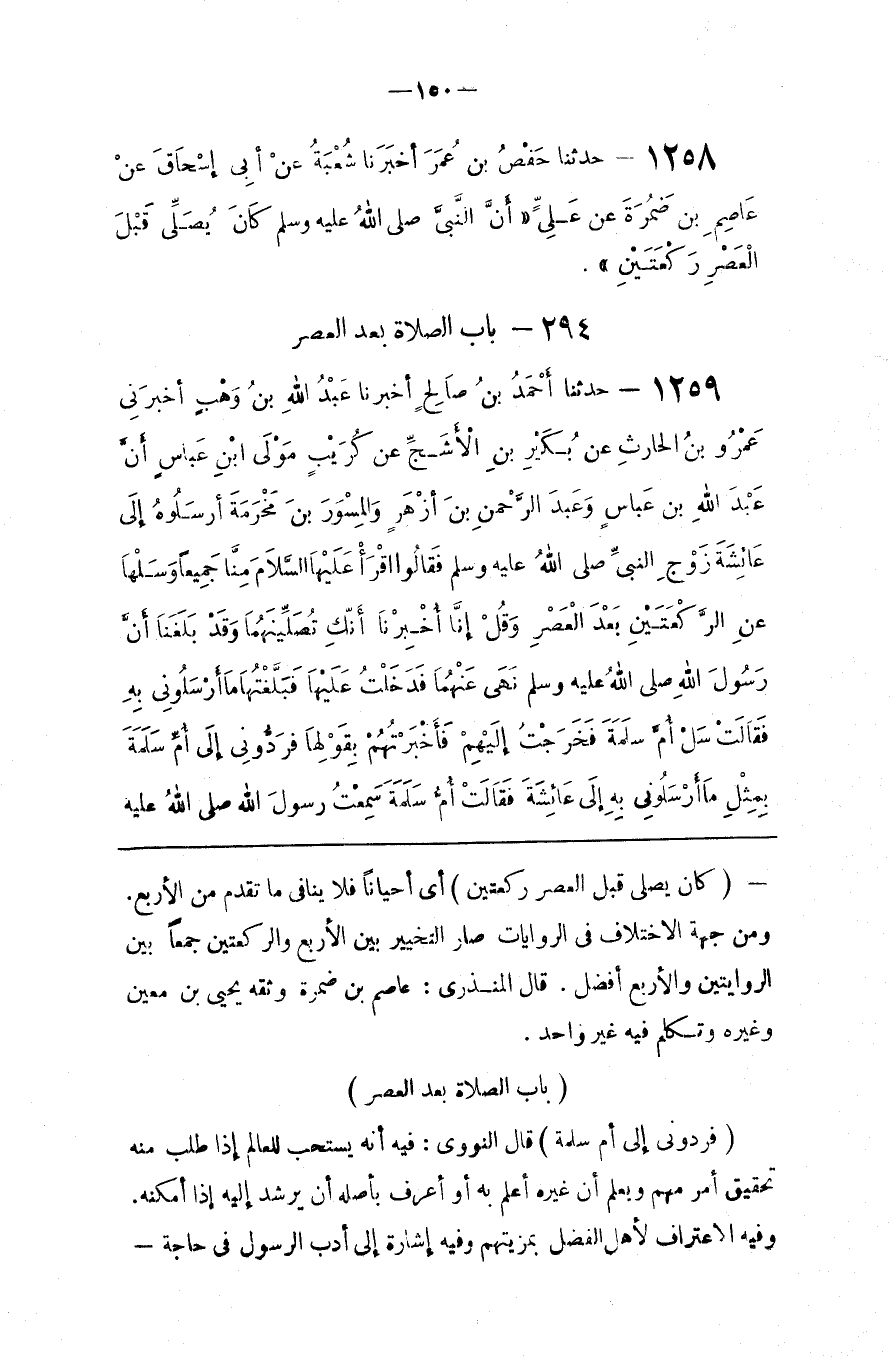 —١٥٠—
١٢٥٨ — حدثنا حَفْصُ بن عُمَرَ أخبَرَنا شُعْبَةُ عنْ أبِى إسْحَاقَ عنْ
عَاصِمِ بن ضَمُرَةَ عن عَـلِىٍّ « أَنَّ النَّبىَّ صلى اللهُ عليه وسلم كَانَ يُصَـلِّى قَبْلَ
الْعَصْرِ رَكْعَتَـيْنِ » .
٢٩٤ — باب الصلاة بعد العصر
١٢٥٩ — حدثنا أَحْمَدُ بنُ صَالِحٍ أخبرنا عَبْدُ اللهِ بنُ وَهْبٍ أخبرَنى
عَمْرُو بنُ الحارثِ عن بُـكَيْرِ بنِ الْأَشَـجِّ عن كُرَيْبٍ مَوْلَى ابْنِ عَباسٍ أَنَّ
عَبْدَ اللهِ بن عَباسٍ وَعَبدَ الرَّحْمنِ بنَ أزْهَرٍ وَالمِسْوَرَ بنَ مَخْرَمَةَ أرسَـلُوهُ إلَى
عَائِشَةَ زَوْجِ النبىِّ صلى اللهُ عليه وسلم فَقَالُوا اقْرَأْ عَلَيْهَا السَّلَامَ مِنَّا جَمِيعاً وَسَـلْهَا
عنِ الرَّكْعَتَـيْنِ بَعْدَ الْعَصْرِ وَقُلْ إنَّا أُخْـبِرْنَا أَنَّكِ تُصَلِّينَهُمَا وَقَدْ بَلَغَنَا أَنَّ
رَسُولَ اللهِ صلى اللهُ عليه وسلم نَهَى عَنْهُمَا فَدَخَلْتُ عَلَيْهَا فَبَلَّغْتُهَا مَا أَرْسَلُونِى بِهِ
فَقَالَتْ سَلْ أُمَّ سلَمَةَ فَخَرَجْتُ إلَيْهِمْ فَأَخْبَرْتُهُمْ بِقَوْلِهَا فَرَدُّونِى إلَى أُمِّ سَلَمَةَ
بِمِثْلِ مَا أَرْسَلُونِى بِهِ إلَى عَائِشَةَ فَقَالَتْ أُمُّ سَلَمَةَ سَمِعْتُ رسولَ الله صلى اللهُ عليه
— ( كان يصلى قبل العصر ركعتين ) أى أحياناً فلا ينافى ما تقدم من الأربع.
ومن جهة الاختلاف فى الروايات صار التخيير بين الأربع والركعتين جمعاً بين
الروايتين والأربع أفضل . قال المنـذرى : عاصم بن ضمرة وثقه يحيى بن معين
وغيره وتـكلم فيه غير واحد .
( باب الصلاة بعد العصر )
( فردونى إلى أم سلمة ) قال النووى : فيه أنه يستحب للعالم إذا طلب منه
تحقيق أمر مهم ويعلم أن غيره أعلم به أو أعرف بأصله أن يرشد إليه إذا أمكنه.
وفيه الاعتراف لأهل الفضل بمزيتهم وفيه إشارة إلى أدب الرسول فى حاجة —